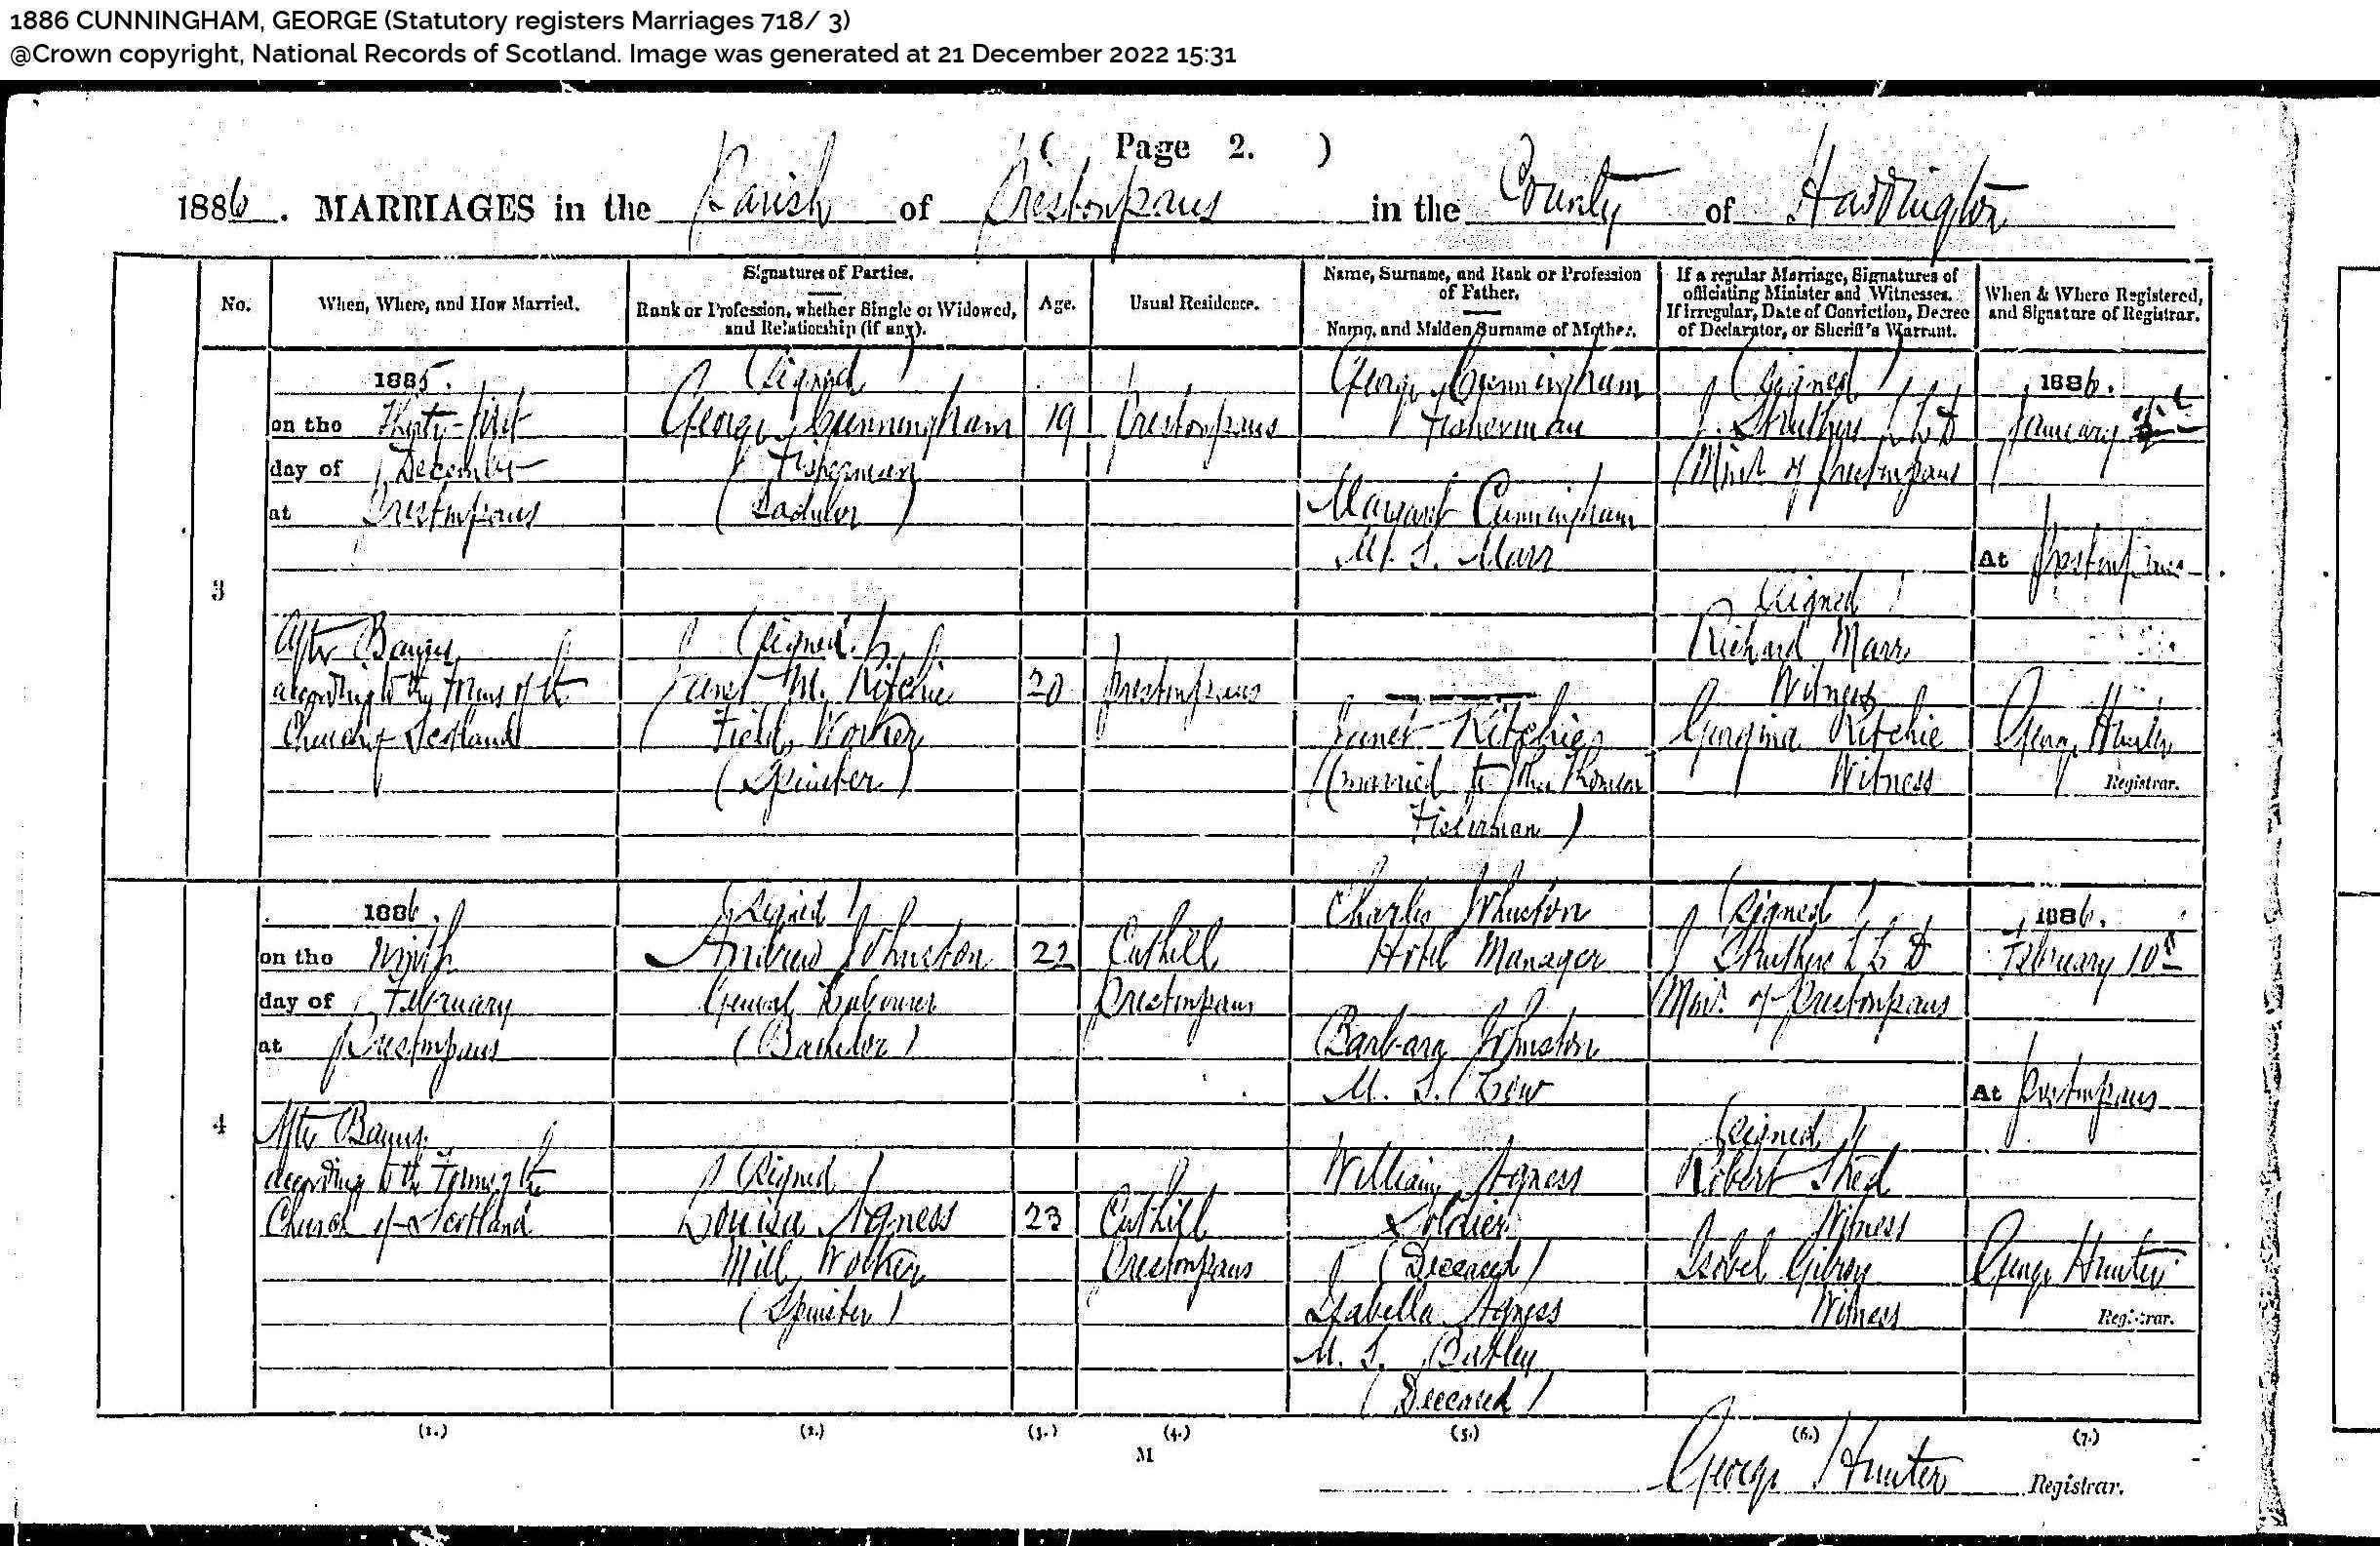 1886 CUNNINGHAM, GEORGE (Statutory registers Marriages 718/ 3)
@Crown copyright, National Records of Scotland. Image was generated at 21 December 2022 15:31
( Page 2. )
1886. MARRIAGES in the Parish of Prestonpans in the County of Haddington
No.
When, Where, and How Married.
Signatures of Parties.
Rank or Profession, whether Single or Widowed,
and Relationship (if any).
Age.
Usual Residence.
Name, Surname, and Rank or Profession
of Father.
Name, and Maiden Surname of Mother.
If a regular Marriage, Signatures of
officiating Minister and Witnesses.
If irregular, Date of Conviction, Decree
of Declarator, or Sheriff's Warrant.
When & Where Registered,
and Signature of Registrar.
3
1885.
on the Thirty-first
day of December
at Prestonpans
After Banns
according to the Forms of the
Church of Scotland
(Signed)
George Cunningham
Fisherman
(Bachelor)
19
Prestonpans
George Cunningham
Fisherman
Margaret Cunningham
M. S. Marr
(Signed)
J. Struthers LLD
Minr. of Prestonpans
1886.
January
At Prestonpans
(Signed)
Janet M. Ritchie
Field Worker
(Spinster)
20
Prestonpans
Janet Ritchie
(married to John Thomson
Fisherman)
(Signed)
Richard Marr
Witness
Georgina Ritchie
Witness
George Hunter
Registrar.
4
1886.
on the Ninth
day of February
at Prestonpans
After Banns
according to the Forms of the
Church of Scotland
(Signed)
Andrew Johnston
General Labourer
(Bachelor)
22
Cuthill
Prestonpans
Charles Johnston
Hotel Manager
Barbara Johnston
M. S. Low
(Signed)
J Struthers LLD
Minr. of Prestonpans
1886.
February 10th
At Prestonpans
(Signed)
Louisa Agness
Mill Worker
(Spinster)
23
Cuthill
Prestonpans
William Agness
Soldier
(Deceased)
Isabella Agness
M. S.
(Deceased)
(Signed)
Robert Shed
Witness
Isobel Gilroy
Witness
George Hunter
Registrar.
(1.) (2.) (3.) (4.) (5.) (6.) (7.)
M
George Hunter Registrar.